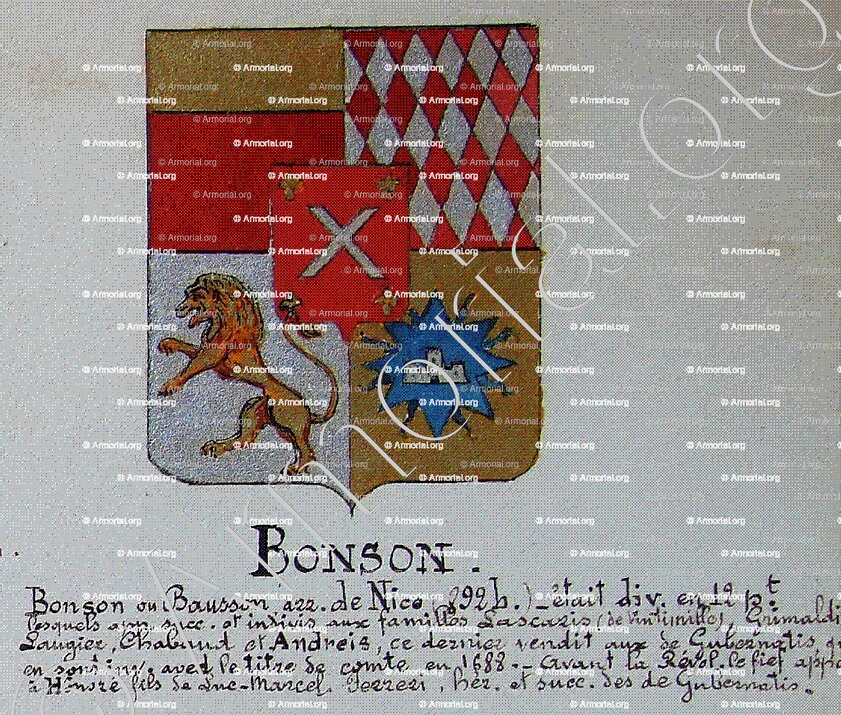 BONSON.
Bonson ou Bausson, arr. de Nice, 892 b.) - était div. en 12 pt
lesquels app. succ. et indivis aux familles Lascaris (de Vintimille), Grimaldi
Laugier, Chabaud et Andreis, ce dernier vendit aux de Gubernatis, qu
avec le titre de comte en 1688. - Avant la Révol. le fief app
à Honoré fils de Luc-Marcel, hér. et succ. des de Gubernatis.
© Armorial.org
Armorial.org